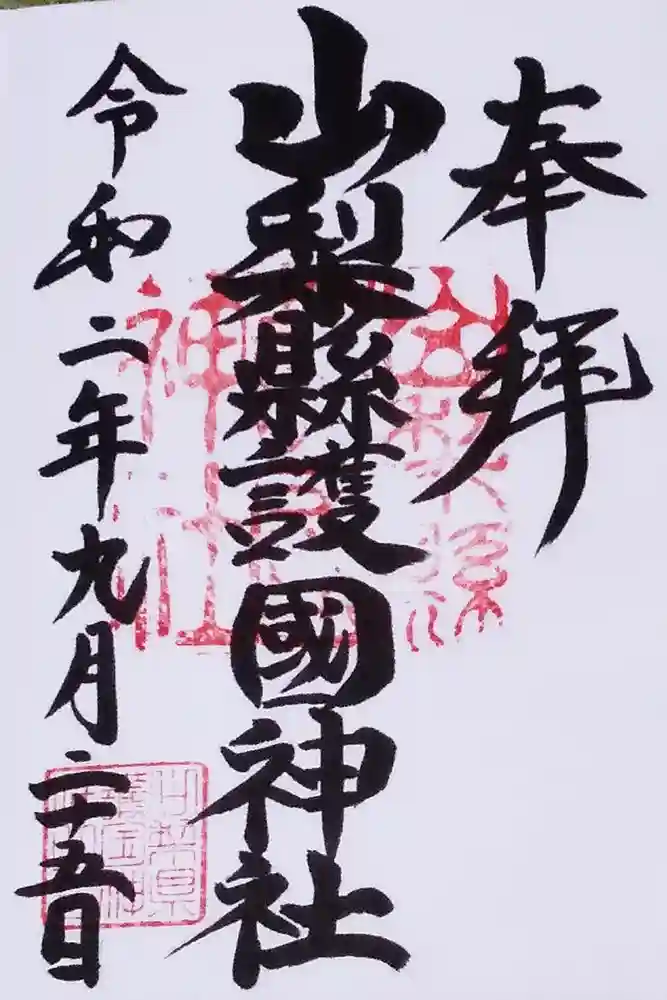 奉拝
山梨縣護國神社
令和二年九月二十五日